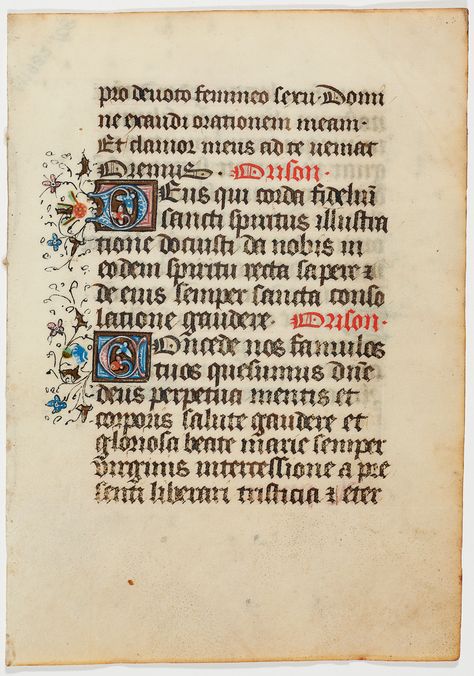 pro devoto femineo sexu· Domi
ne exaudi orationem meam·
Et clamor meus ad te veniat
Oremus. · Orison·
Deus qui corda fideliū
sancti spiritus illustra
tione docuisti da nobis in
eodem spiritu recta sapere ⁊
de eius semper sancta conso
latione gaudere· Orison·
Concede nos famulos
tuos quesumus dn̄e
deus perpetua mentis et
corporis salute gaudere et
gloriosa beate marie semper
virginis intercessione a pre
senti liberari tristicia ⁊ eter